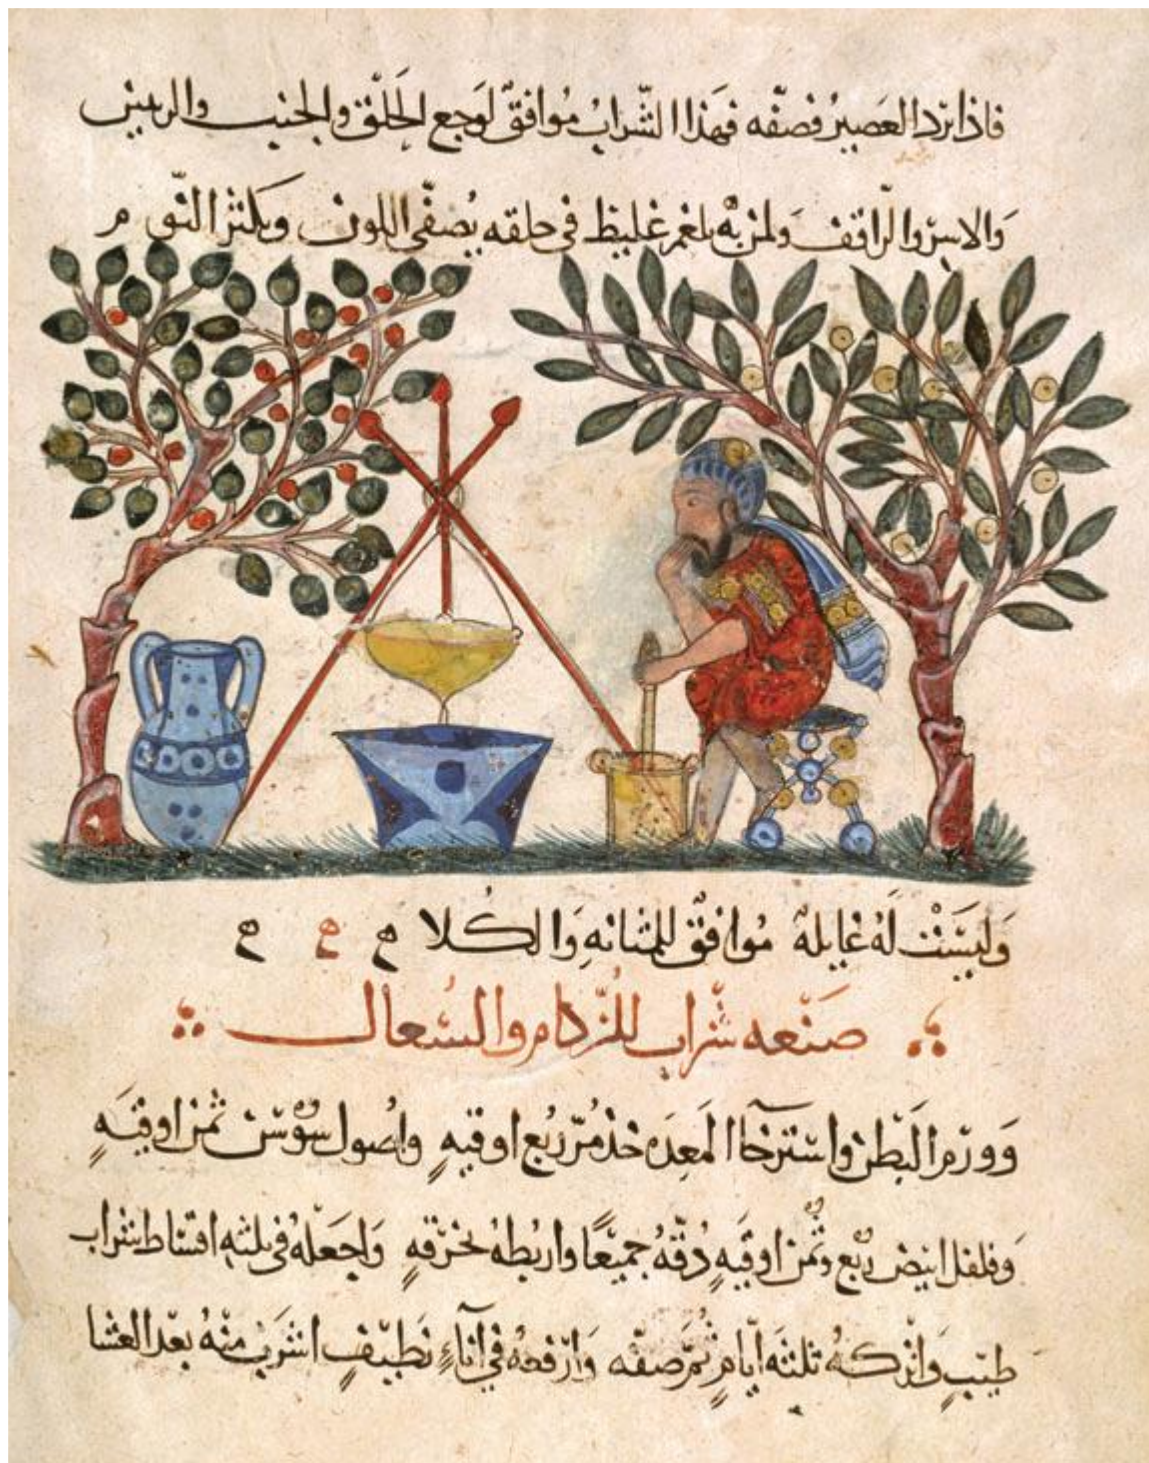 فاذا برد العصير فصفّه فهَذا الشّرابُ مُوافقٌ لوَجع الحَلْق والجنب والرئيتين
وَالاسر والراقف ولمن به بلغم غليظ في حلقه يُصفّي اللون ويكثر النوم
وَليسَتْ لَهُ غايلة مُوافقٌ للمثانه وَالكُلا ح ح ح
صَنْعه شَراب للزّكام والسُعال
وَورَم البَطن واسترخا المَعِدَه خذ مُرّ ربُع اوقيهٍ واصُول سُوْسن ثمن اوقيَهٍ
وَفلفل ابيض ربُع وثُمن اوقيَهٍ دُقّهُ جميعًا واربُطهُ بخرقهٍ وَاجعَلهُ في ثلثه اقساط شراب
طيّبٍ وَاتركهُ ثلثَه ايّامٍ ثمّ صفّه وَارفعهُ في اناءٍ نظيفٍ اشرَبْ منهُ بعدَ العشا